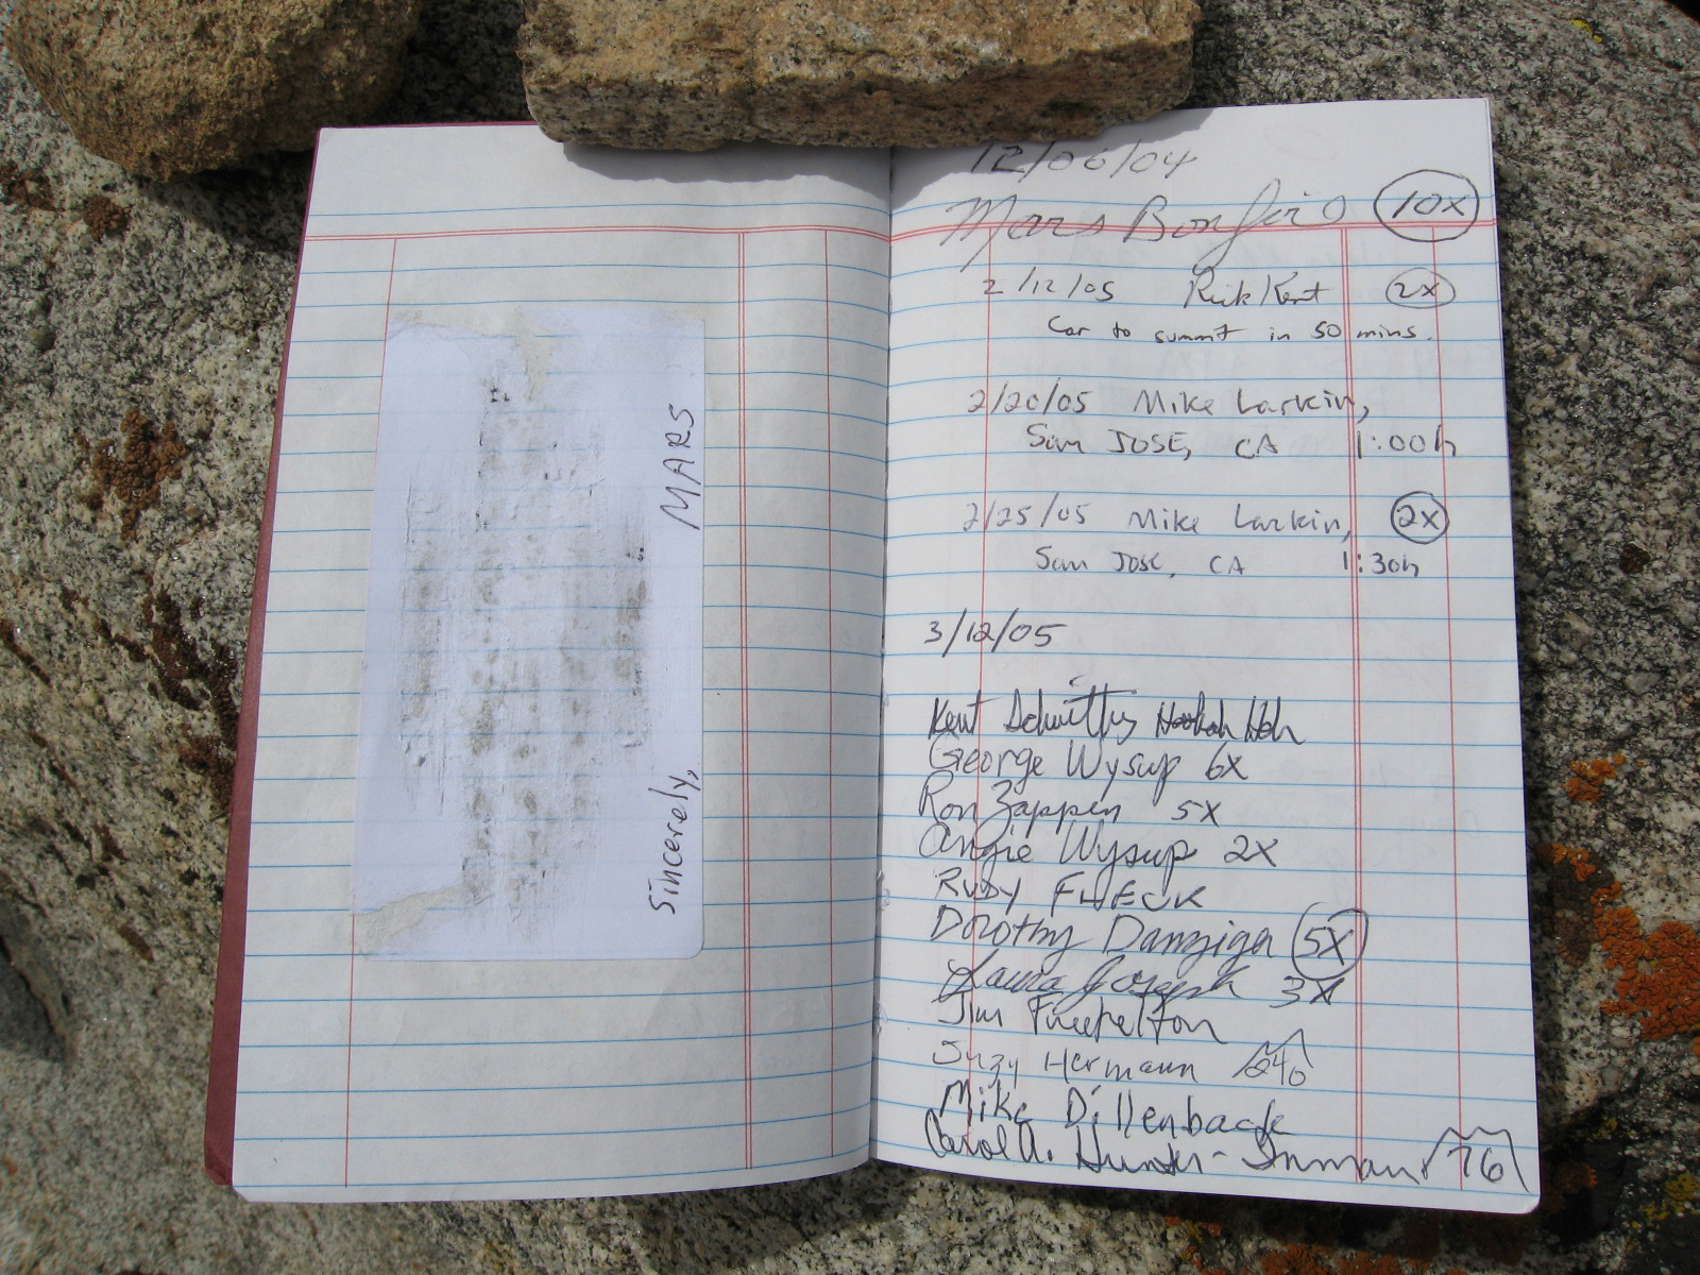 Sincerely,
MARS
12/06/04
Mars Bonfire 10x
2/12/05 Rick Kent 2x
Car to summit in 50 mins.
2/20/05 Mike Larkin,
San JOSE, CA 1:00h
2/25/05 Mike Larkin, 2x
San JOSE, CA 1:30h
3/12/05
Kent
George Wysup 6x
Ron Zappen 5x
Angie Wysup 2x
RUBY FLECK
Dorothy Danziger 5X
Laura Joseph 3X
Jim
Suzy Hermann 240
Mike Dillenback
Carol A. Hunter-Inman 76